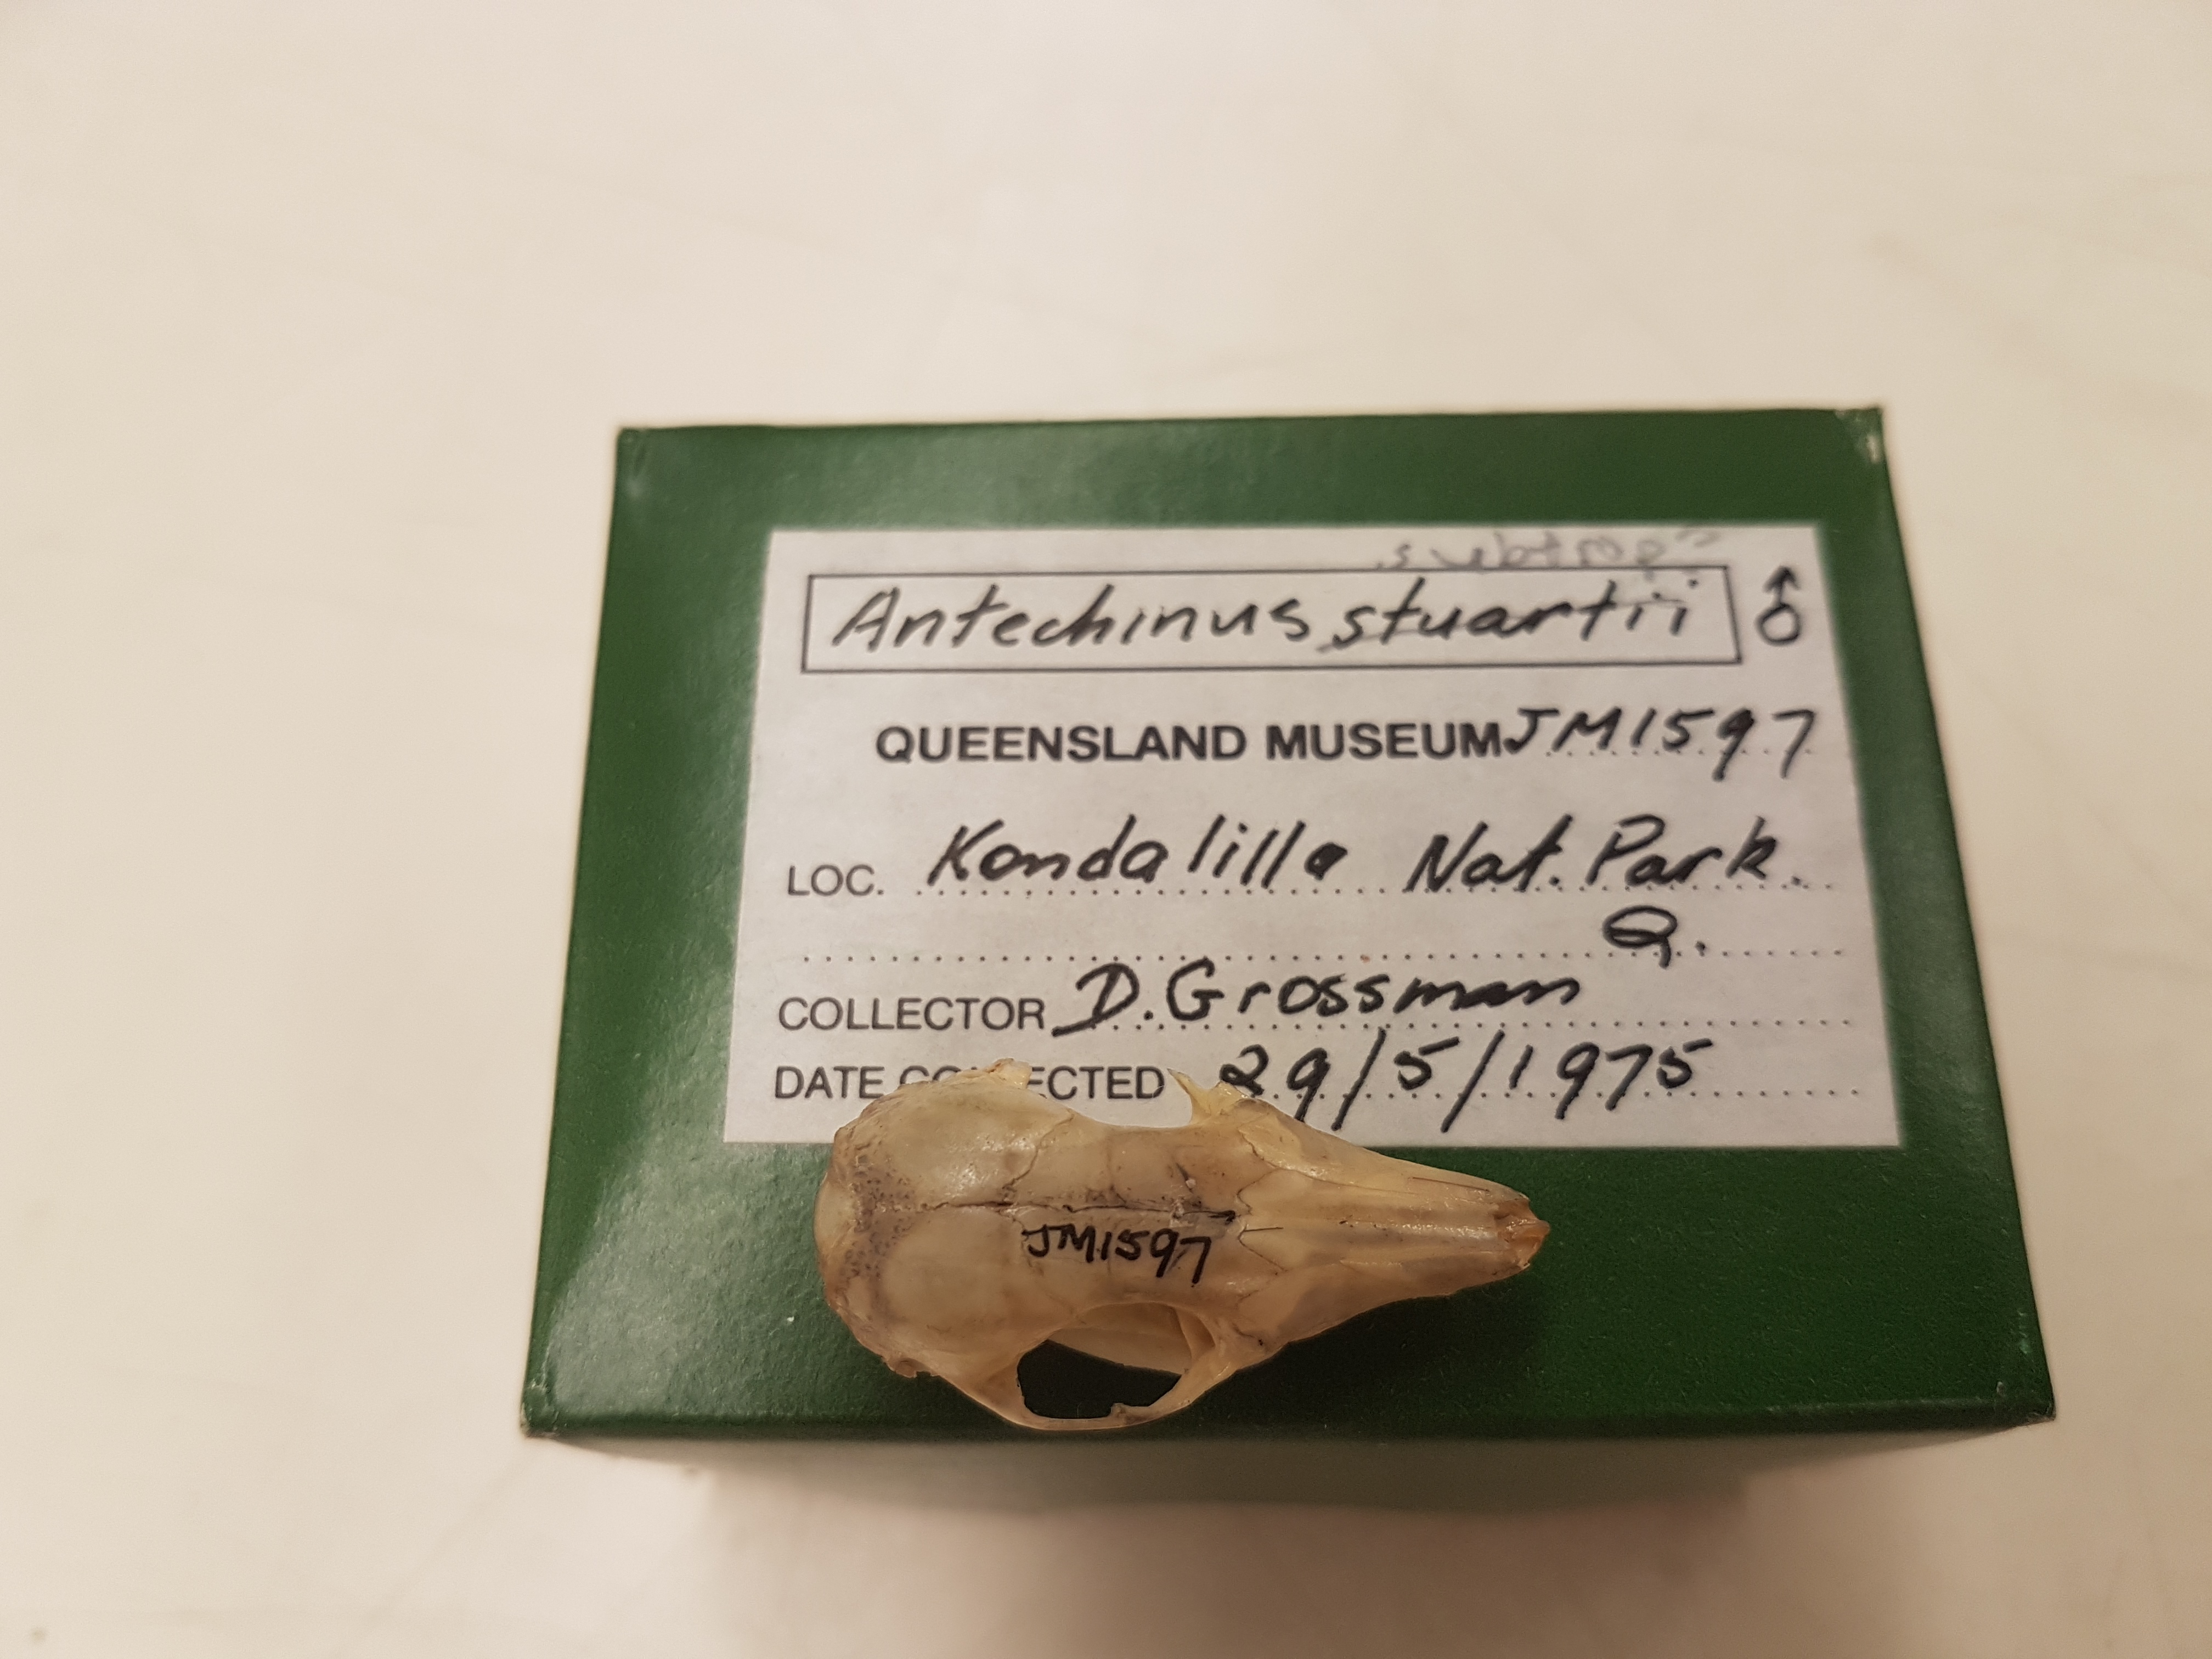 Antechinus stuartii ♂
QUEENSLAND MUSEUM JM1597
LOC. Kondalilla Nat. Park.
Q.
COLLECTOR D. Grossman
DATE COLLECTED 29/5/1975
JM1597